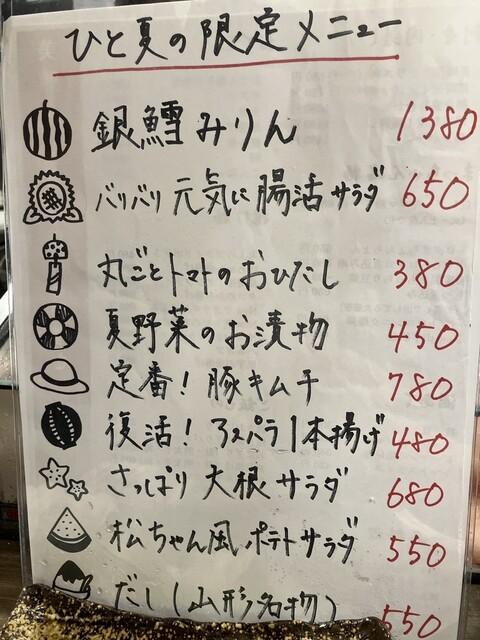 ひと夏の限定メニュー
銀鱈みりん 1380
バリバリ元気に腸活サラダ 650
丸ごとトマトのおひたし 380
夏野菜のお漬物 450
定番！豚キムチ 780
復活！アスパラ1本揚げ 480
さっぱり大根サラダ 680
松ちゃん風ポテトサラダ 550
だし(山形名物) 550